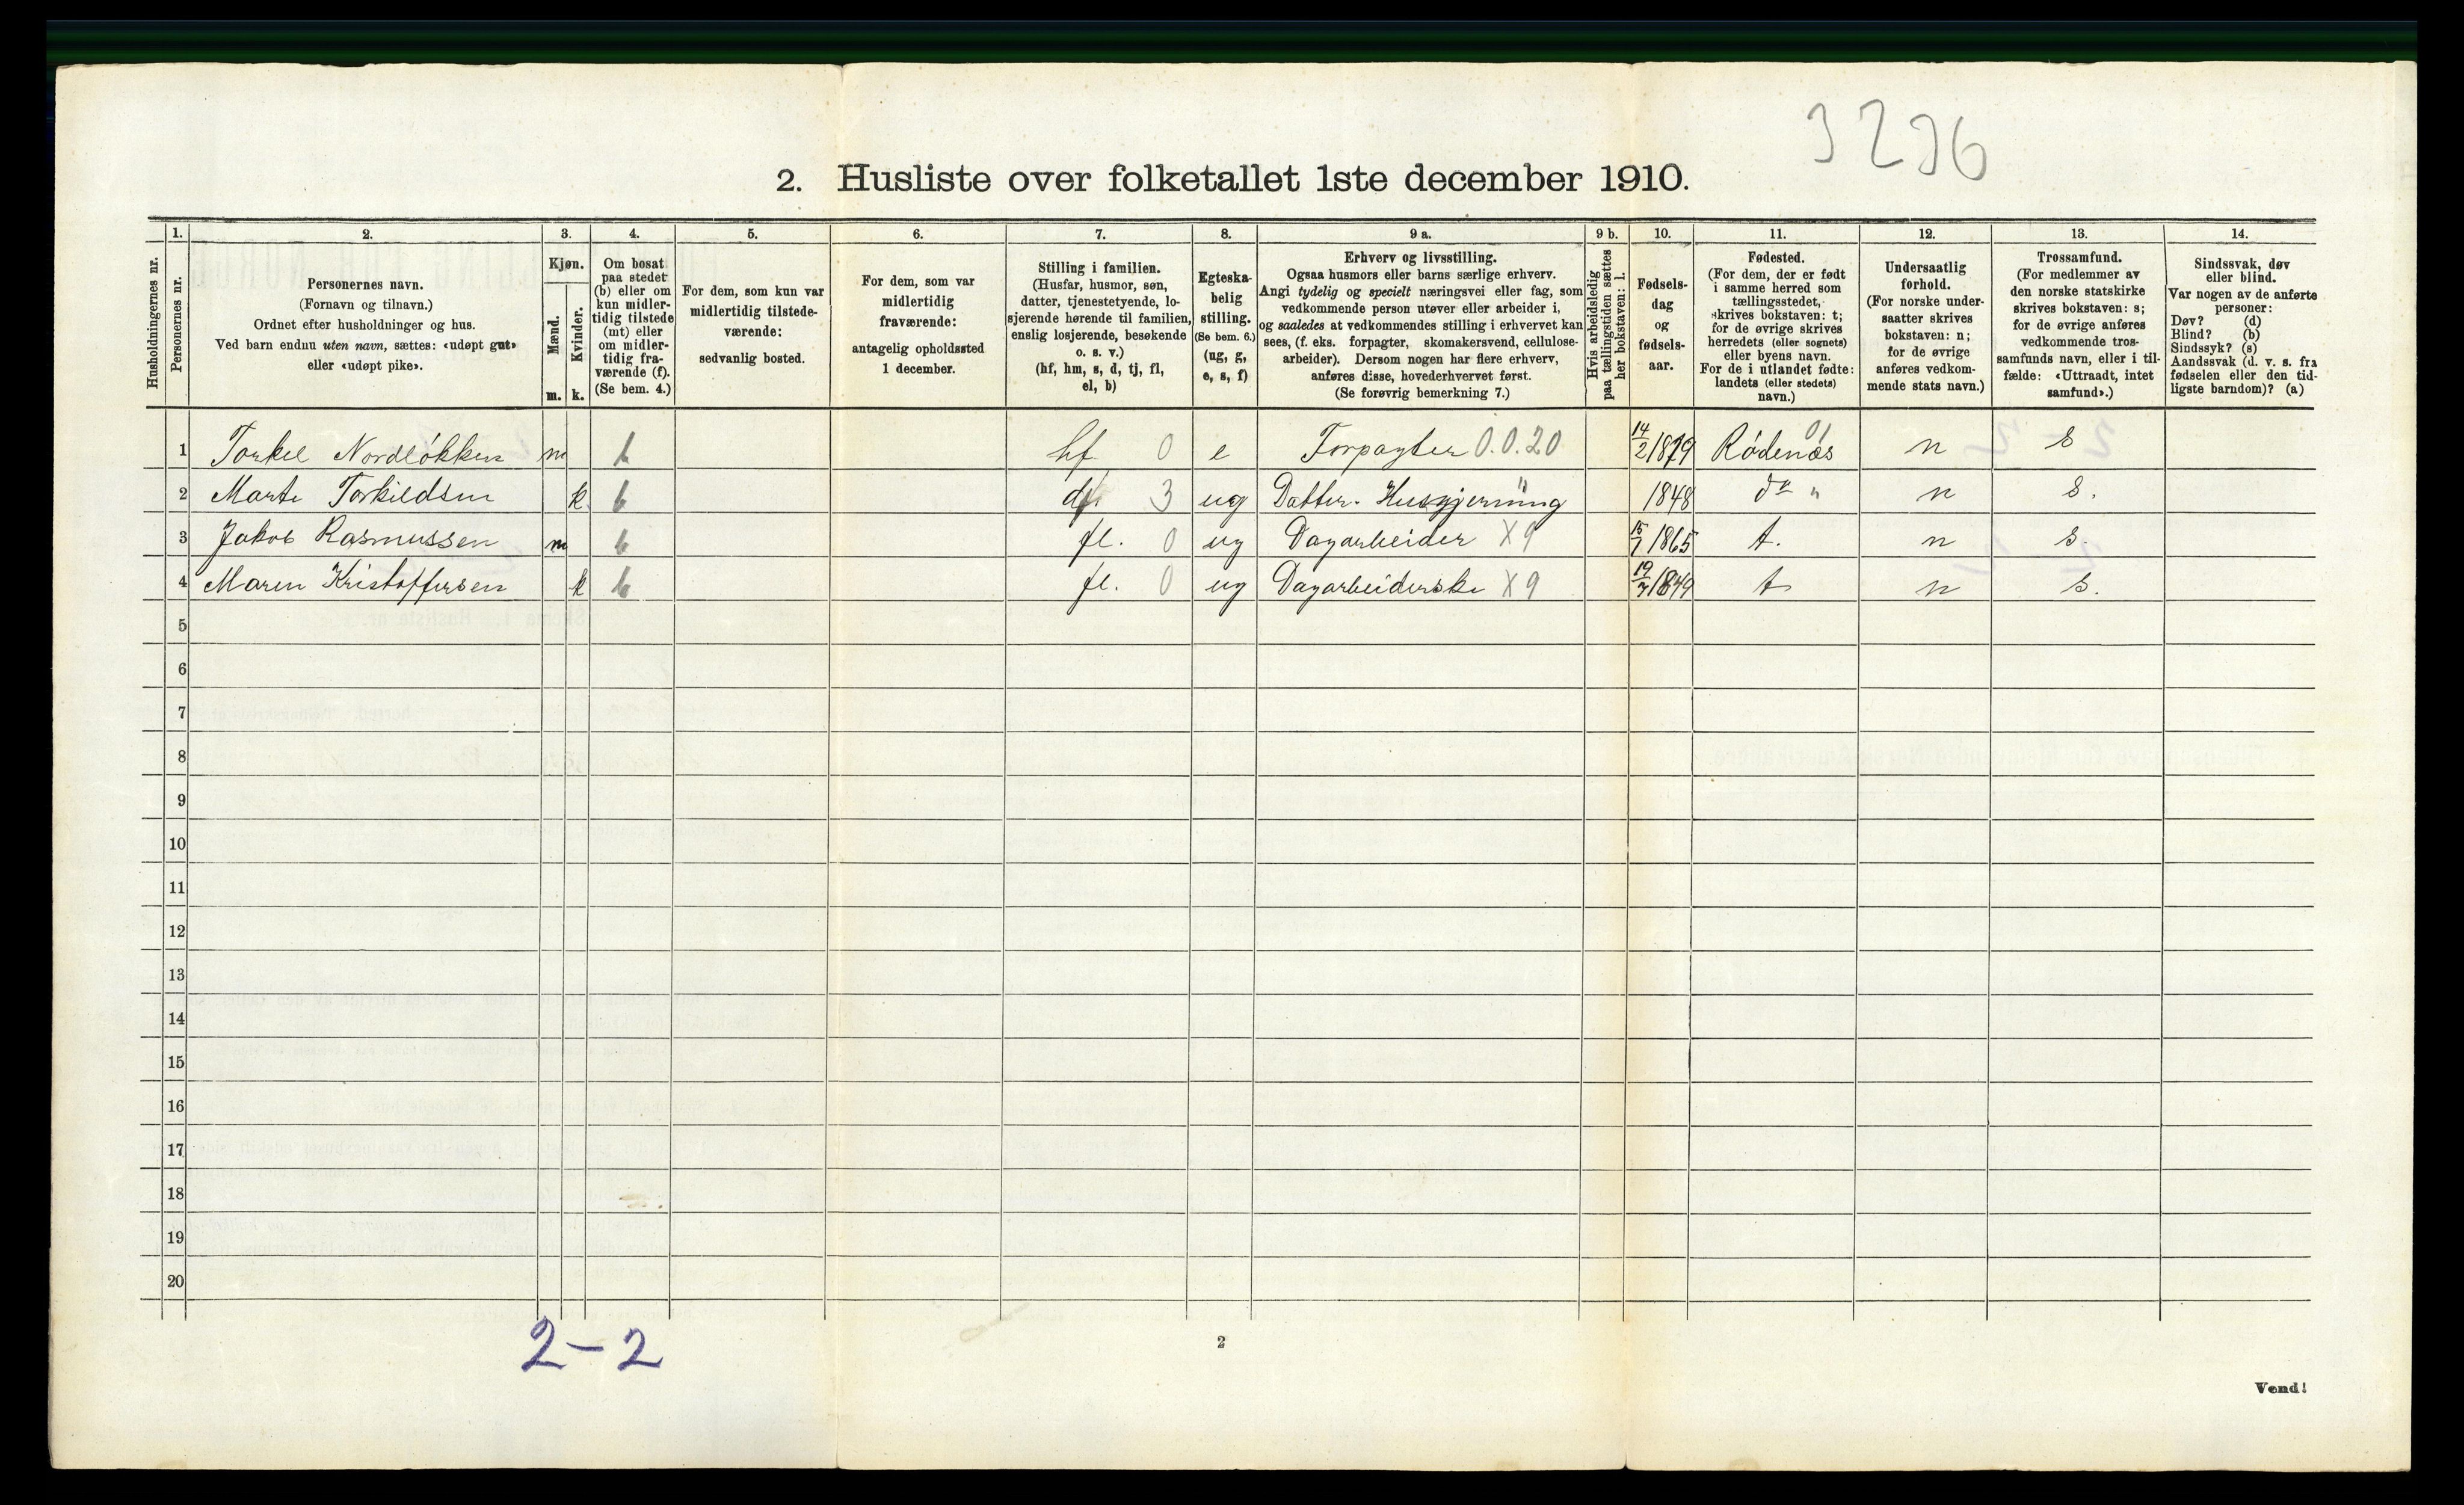 3236
2. Husliste over folketallet 1ste december 1910.
Husholdningernes nr.
1.
Personernes nr.
2.
Personernes navn.
(Fornavn og tilnavn.)
Ordnet efter husholdninger og hus.
Ved barn endnu uten navn, sættes: «udøpt gut»
eller «udøpt pike».
3.
Kjøn.
Mænd.
Kvinder.
m. k.
4.
Om bosat
paa stedet
(b) eller om
kun midler-
tidig tilstede
(mt) eller
om midler-
tidig fra-
værende (f).
(Se bem. 4.)
5.
For dem, som kun var
midlertidig tilstede-
værende:
sedvanlig bosted.
6.
For dem, som var
midlertidig
fraværende:
antagelig opholdssted
1 december.
7.
Stilling i familien.
(Husfar, husmor, søn,
datter, tjenestetyende, lo-
sjerende hørende til familien,
enslig losjerende, besøkende
o. s. v.)
(hf, hm, s, d, tj, fl,
el, b)
8.
Egteska-
belig
stilling.
(Se bem. 6.)
(ug, g,
e, s, f)
9 a.
Erhverv og livsstilling.
Ogsaa husmors eller barns særlige erhverv.
Angi tydelig og specielt næringsvei eller fag, som
vedkommende person utøver eller arbeider i,
og saaledes at vedkommendes stilling i erhvervet kan
sees, (f. eks. forpagter, skomakersvend, cellulose-
arbeider). Dersom nogen har flere erhverv,
anføres disse, hovederhvervet først.
(Se forøvrig bemerkning 7.)
9 b.
Hvis arbeidsledig
paa tællingstiden sættes
her bokstaven: l.
10.
Fødsels-
dag
og
fødsels-
aar.
11.
Fødested.
(For dem, der er født
i samme herred som
tællingsstedet,
skrives bokstaven: t;
for de øvrige skrives
herredets (eller sognets)
eller byens navn.
For de i utlandet fødte:
landets (eller stedets)
navn.)
12.
Undersaatlig
forhold.
(For norske under-
saatter skrives
bokstaven: n;
for de øvrige
anføres vedkom-
mende stats navn.)
13.
Trossamfund.
(For medlemmer av
den norske statskirke
skrives bokstaven: s;
for de øvrige anføres
vedkommende tros-
samfunds navn, eller i til-
fælde: «Uttraadt, intet
samfund».)
14.
Sindssvak, døv
eller blind.
Var nogen av de anførte
personer:
Døv? (d)
Blind? (b)
Sindssyk? (s)
Aandssvak (d. v. s. fra
fødselen eller den tid-
ligste barndom)? (a)
1 Torkel Nordløkken m b hf 0 e Forpagter 0.0.20 14/2 Rødenæs 01 n s
2 Marte Torkildsen k b 3 ug Datter. Husgjerning 1848 do " n s.
3 Jakob Rasmussen m b fl. 0 ug Dagarbeider X9 15/7 1865 t. n s.
4 Maren Kristoffersen k b fl. 0 ug Dagarbeiderske X9 1849 t n s.
5
6
7
8
9
10
11
12
13
14
15
16
17
18
19
20
2-2
2
Vend!